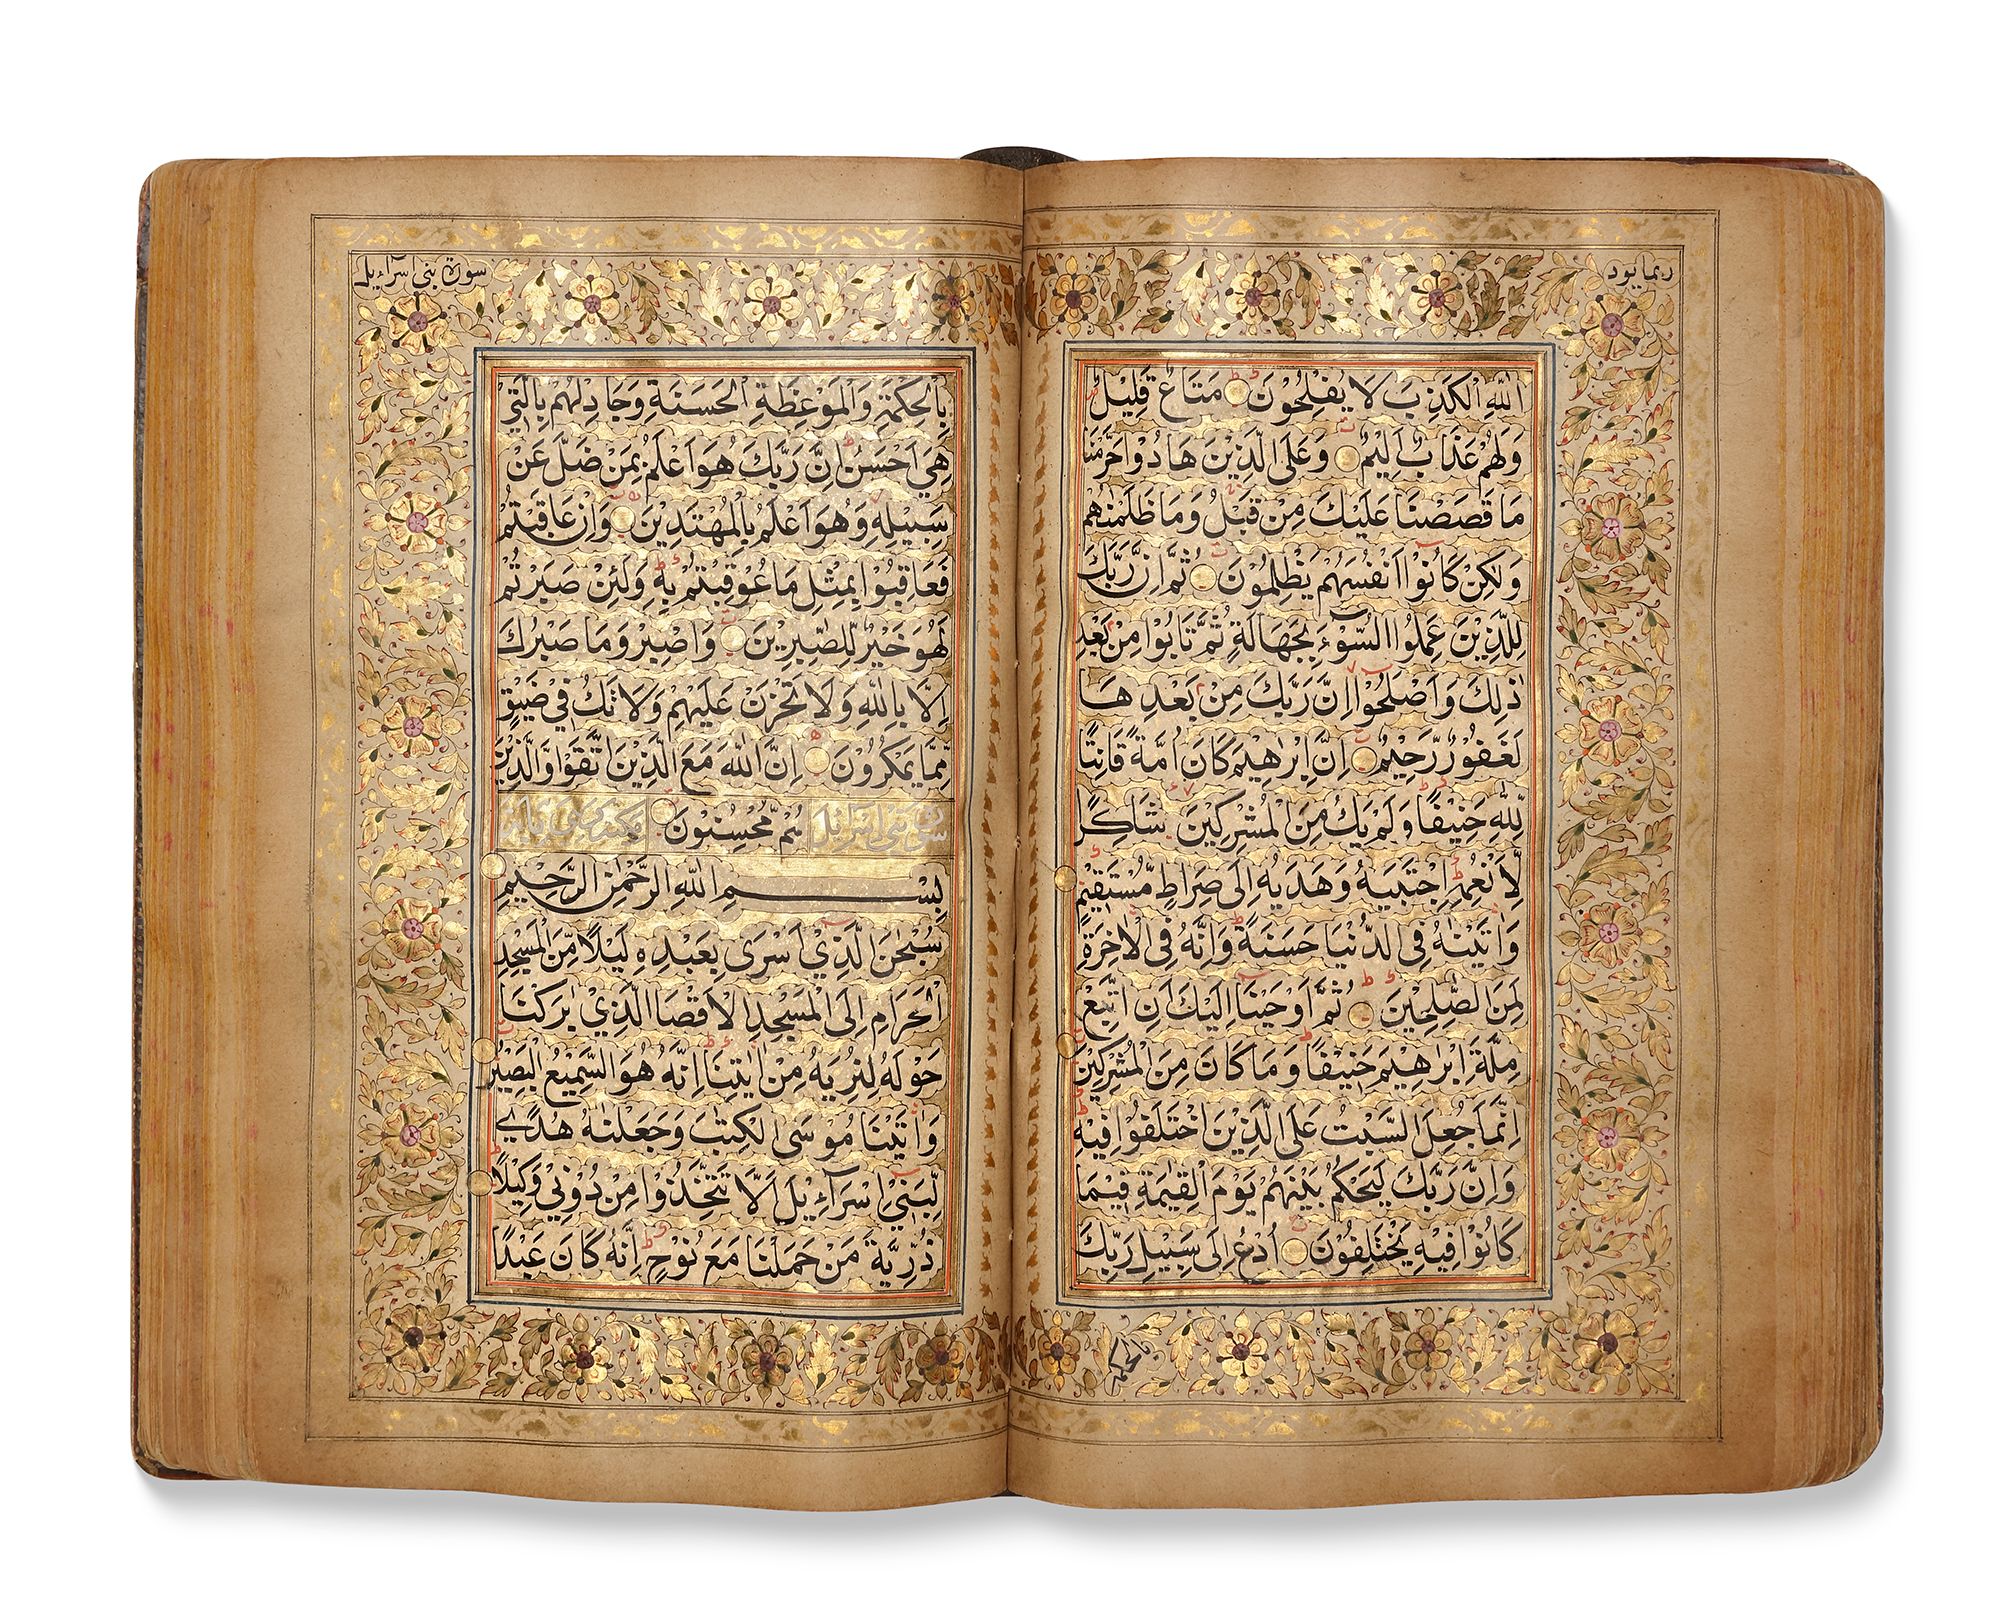 ربما یود
اللّٰهِ الْكَذِبَ لَا یُفْلِحُوْنَ مَتَاعٌ قَلِیْلٌ
وَلَهُمْ عَذَابٌ اَلِیْمٌ وَعَلَی الَّذِیْنَ هَادُوْا حَرَّمْنَا
مَا قَصَصْنَا عَلَیْكَ مِنْ قَبْلُ وَمَا ظَلَمْنٰهُمْ
وَلٰكِنْ كَانُوْا اَنْفُسَهُمْ یَظْلِمُوْنَ ثُمَّ اِنَّ رَبَّكَ
لِلَّذِیْنَ عَمِلُوا السُّوْٓءَ بِجَهَالَةٍ ثُمَّ تَابُوْا مِنْ بَعْدِ
ذٰلِكَ وَاَصْلَحُوْا اِنَّ رَبَّكَ مِنْ بَعْدِهَا
لَغَفُوْرٌ رَّحِیْمٌ اِنَّ اِبْرٰهِیْمَ كَانَ اُمَّةً قَانِتًا
لِّلّٰهِ حَنِیْفًا وَلَمْ یَكُ مِنَ الْمُشْرِكِیْنَ شَاكِرًا
لِّاَنْعُمِهٖ اِجْتَبٰیهُ وَهَدٰیهُ اِلٰی صِرَاطٍ مُّسْتَقِیْمٍ
وَاٰتَیْنٰهُ فِی الدُّنْیَا حَسَنَةً وَاِنَّهٗ فِی الْاٰخِرَةِ
لَمِنَ الصّٰلِحِیْنَ ثُمَّ اَوْحَیْنَا اِلَیْكَ اَنِ اتَّبِعْ
مِلَّةَ اِبْرٰهِیْمَ حَنِیْفًا وَمَا كَانَ مِنَ الْمُشْرِكِیْنَ
اِنَّمَا جُعِلَ السَّبْتُ عَلَی الَّذِیْنَ اخْتَلَفُوْا فِیْهِ
وَاِنَّ رَبَّكَ لَیَحْكُمُ بَیْنَهُمْ یَوْمَ الْقِیٰمَةِ فِیْمَا
كَانُوْا فِیْهِ یَخْتَلِفُوْنَ اُدْعُ اِلٰی سَبِیْلِ رَبِّكَ
بالحكمة
سورة بنی اسرآءیل
بِالْحِكْمَةِ وَالْمَوْعِظَةِ الْحَسَنَةِ وَجَادِلْهُمْ بِالَّتِیْ
هِیَ اَحْسَنُ اِنَّ رَبَّكَ هُوَ اَعْلَمُ بِمَنْ ضَلَّ عَنْ
سَبِیْلِهٖ وَهُوَ اَعْلَمُ بِالْمُهْتَدِیْنَ وَاِنْ عَاقَبْتُمْ
فَعَاقِبُوْا بِمِثْلِ مَا عُوْقِبْتُمْ بِهٖ وَلَئِنْ صَبَرْتُمْ
لَهُوَ خَیْرٌ لِّلصّٰبِرِیْنَ وَاصْبِرْ وَمَا صَبْرُكَ
اِلَّا بِاللّٰهِ وَلَا تَحْزَنْ عَلَیْهِمْ وَلَا تَكُ فِیْ ضَیْقٍ
مِّمَّا یَمْكُرُوْنَ اِنَّ اللّٰهَ مَعَ الَّذِیْنَ اتَّقَوْا وَّالَّذِیْنَ
سورة بنی اسرائیل هُمْ مُّحْسِنُوْنَ
بِسْمِ اللّٰهِ الرَّحْمٰنِ الرَّحِیْمِ
سُبْحٰنَ الَّذِیْ اَسْرٰی بِعَبْدِهٖ لَیْلًا مِّنَ الْمَسْجِدِ
الْحَرَامِ اِلَی الْمَسْجِدِ الْاَقْصَا الَّذِیْ بٰرَكْنَا
حَوْلَهٗ لِنُرِیَهٗ مِنْ اٰیٰتِنَا اِنَّهٗ هُوَ السَّمِیْعُ الْبَصِیْرُ
وَاٰتَیْنَا مُوْسَی الْكِتٰبَ وَجَعَلْنٰهُ هُدًی
لِّبَنِیْ اِسْرَآءِیْلَ اَلَّا تَتَّخِذُوْا مِنْ دُوْنِیْ وَكِیْلًا
ذُرِّیَّةَ مَنْ حَمَلْنَا مَعَ نُوْحٍ اِنَّهٗ كَانَ عَبْدًا